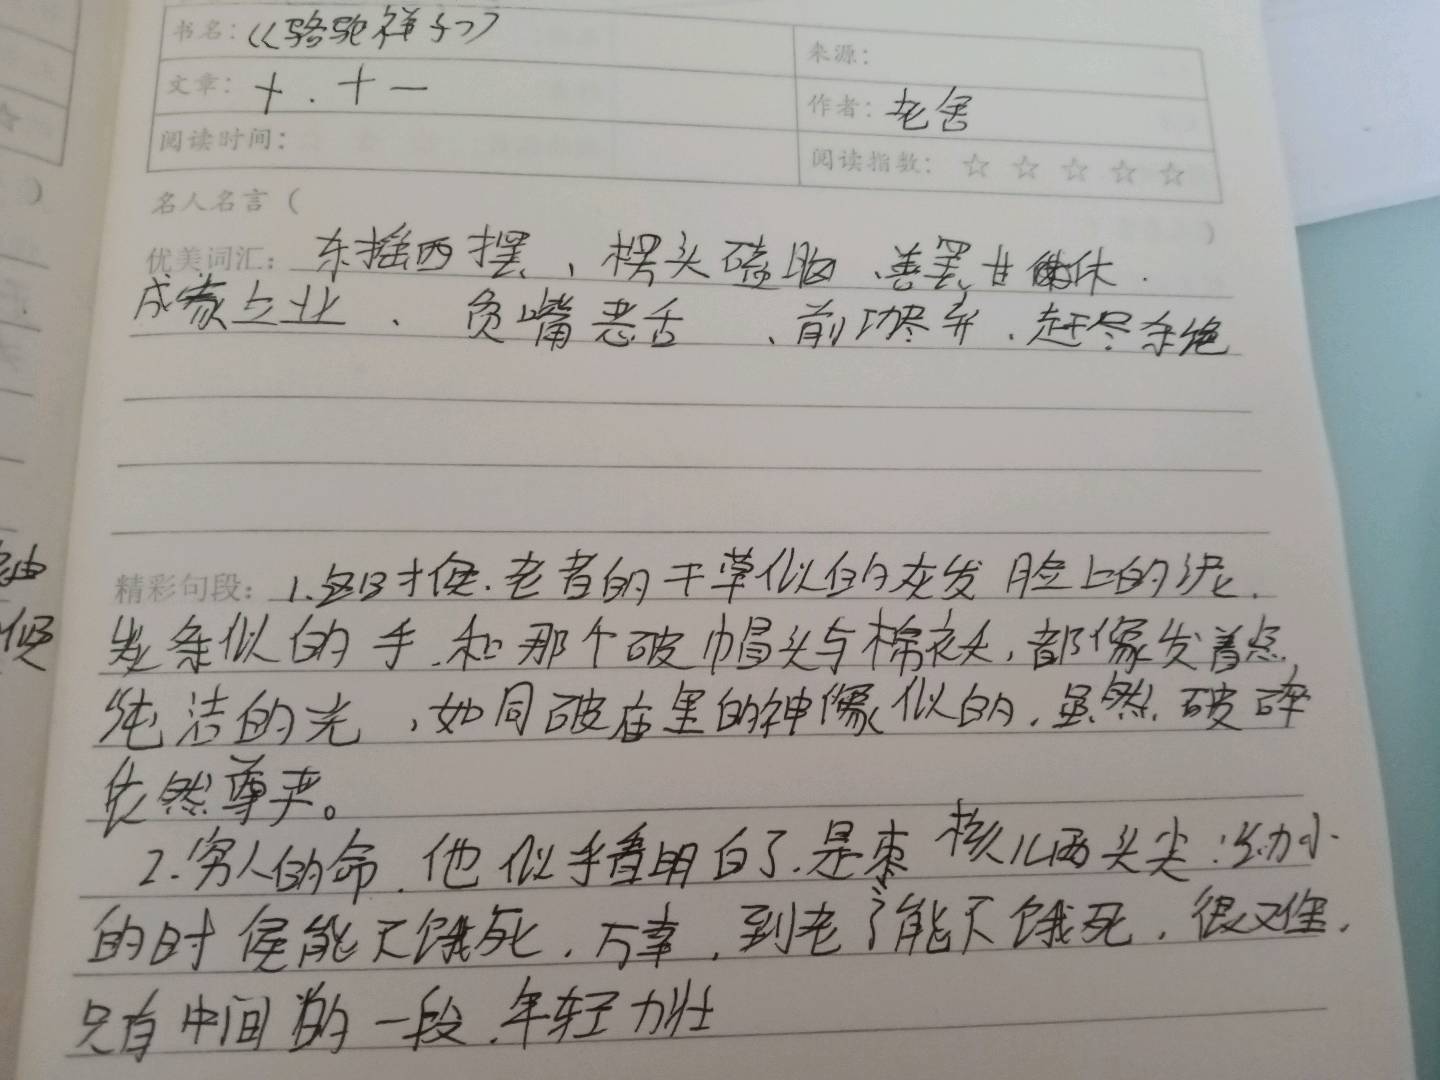 书名：《骆驼祥子》
来源：
文章：十．十一
作者：老舍
阅读时间：
阅读指数：☆ ☆ ☆ ☆ ☆
名人名言（
）
优美词汇：东摇西摆、楞头磕脑、善罢甘休．
成家立业、贫嘴恶舌、削功尽弃．赶尽杀绝
精彩句段：1.这时才候．老者的干草似的灰发 脸上的泥．
炭条似的手．和那个破帽头与棉衣头，都像发着点
纯洁的光，如同破庙里的神像似的．虽然破碎
依然尊严。
2.穷人的命．他似乎看明白了．是枣核儿两头尖：幼小
的时候能不饿死．万幸，到老了能不饿死．很又难．
只有中间的一段．年轻力壮